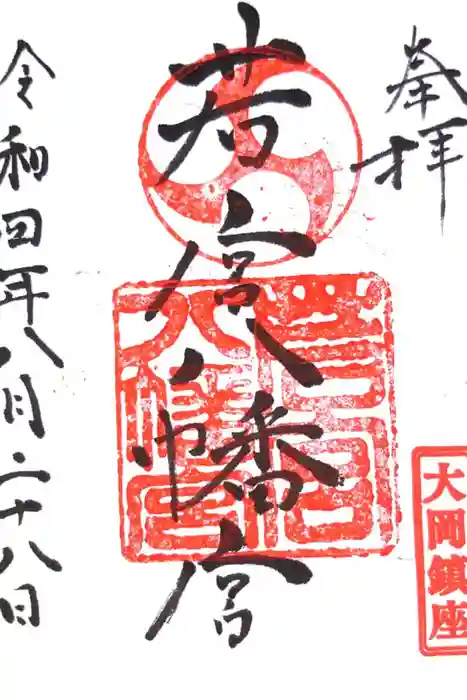 奉拝
大岡鎮座
若宮八幡宮
八幡宮
令和四年八月二十八日